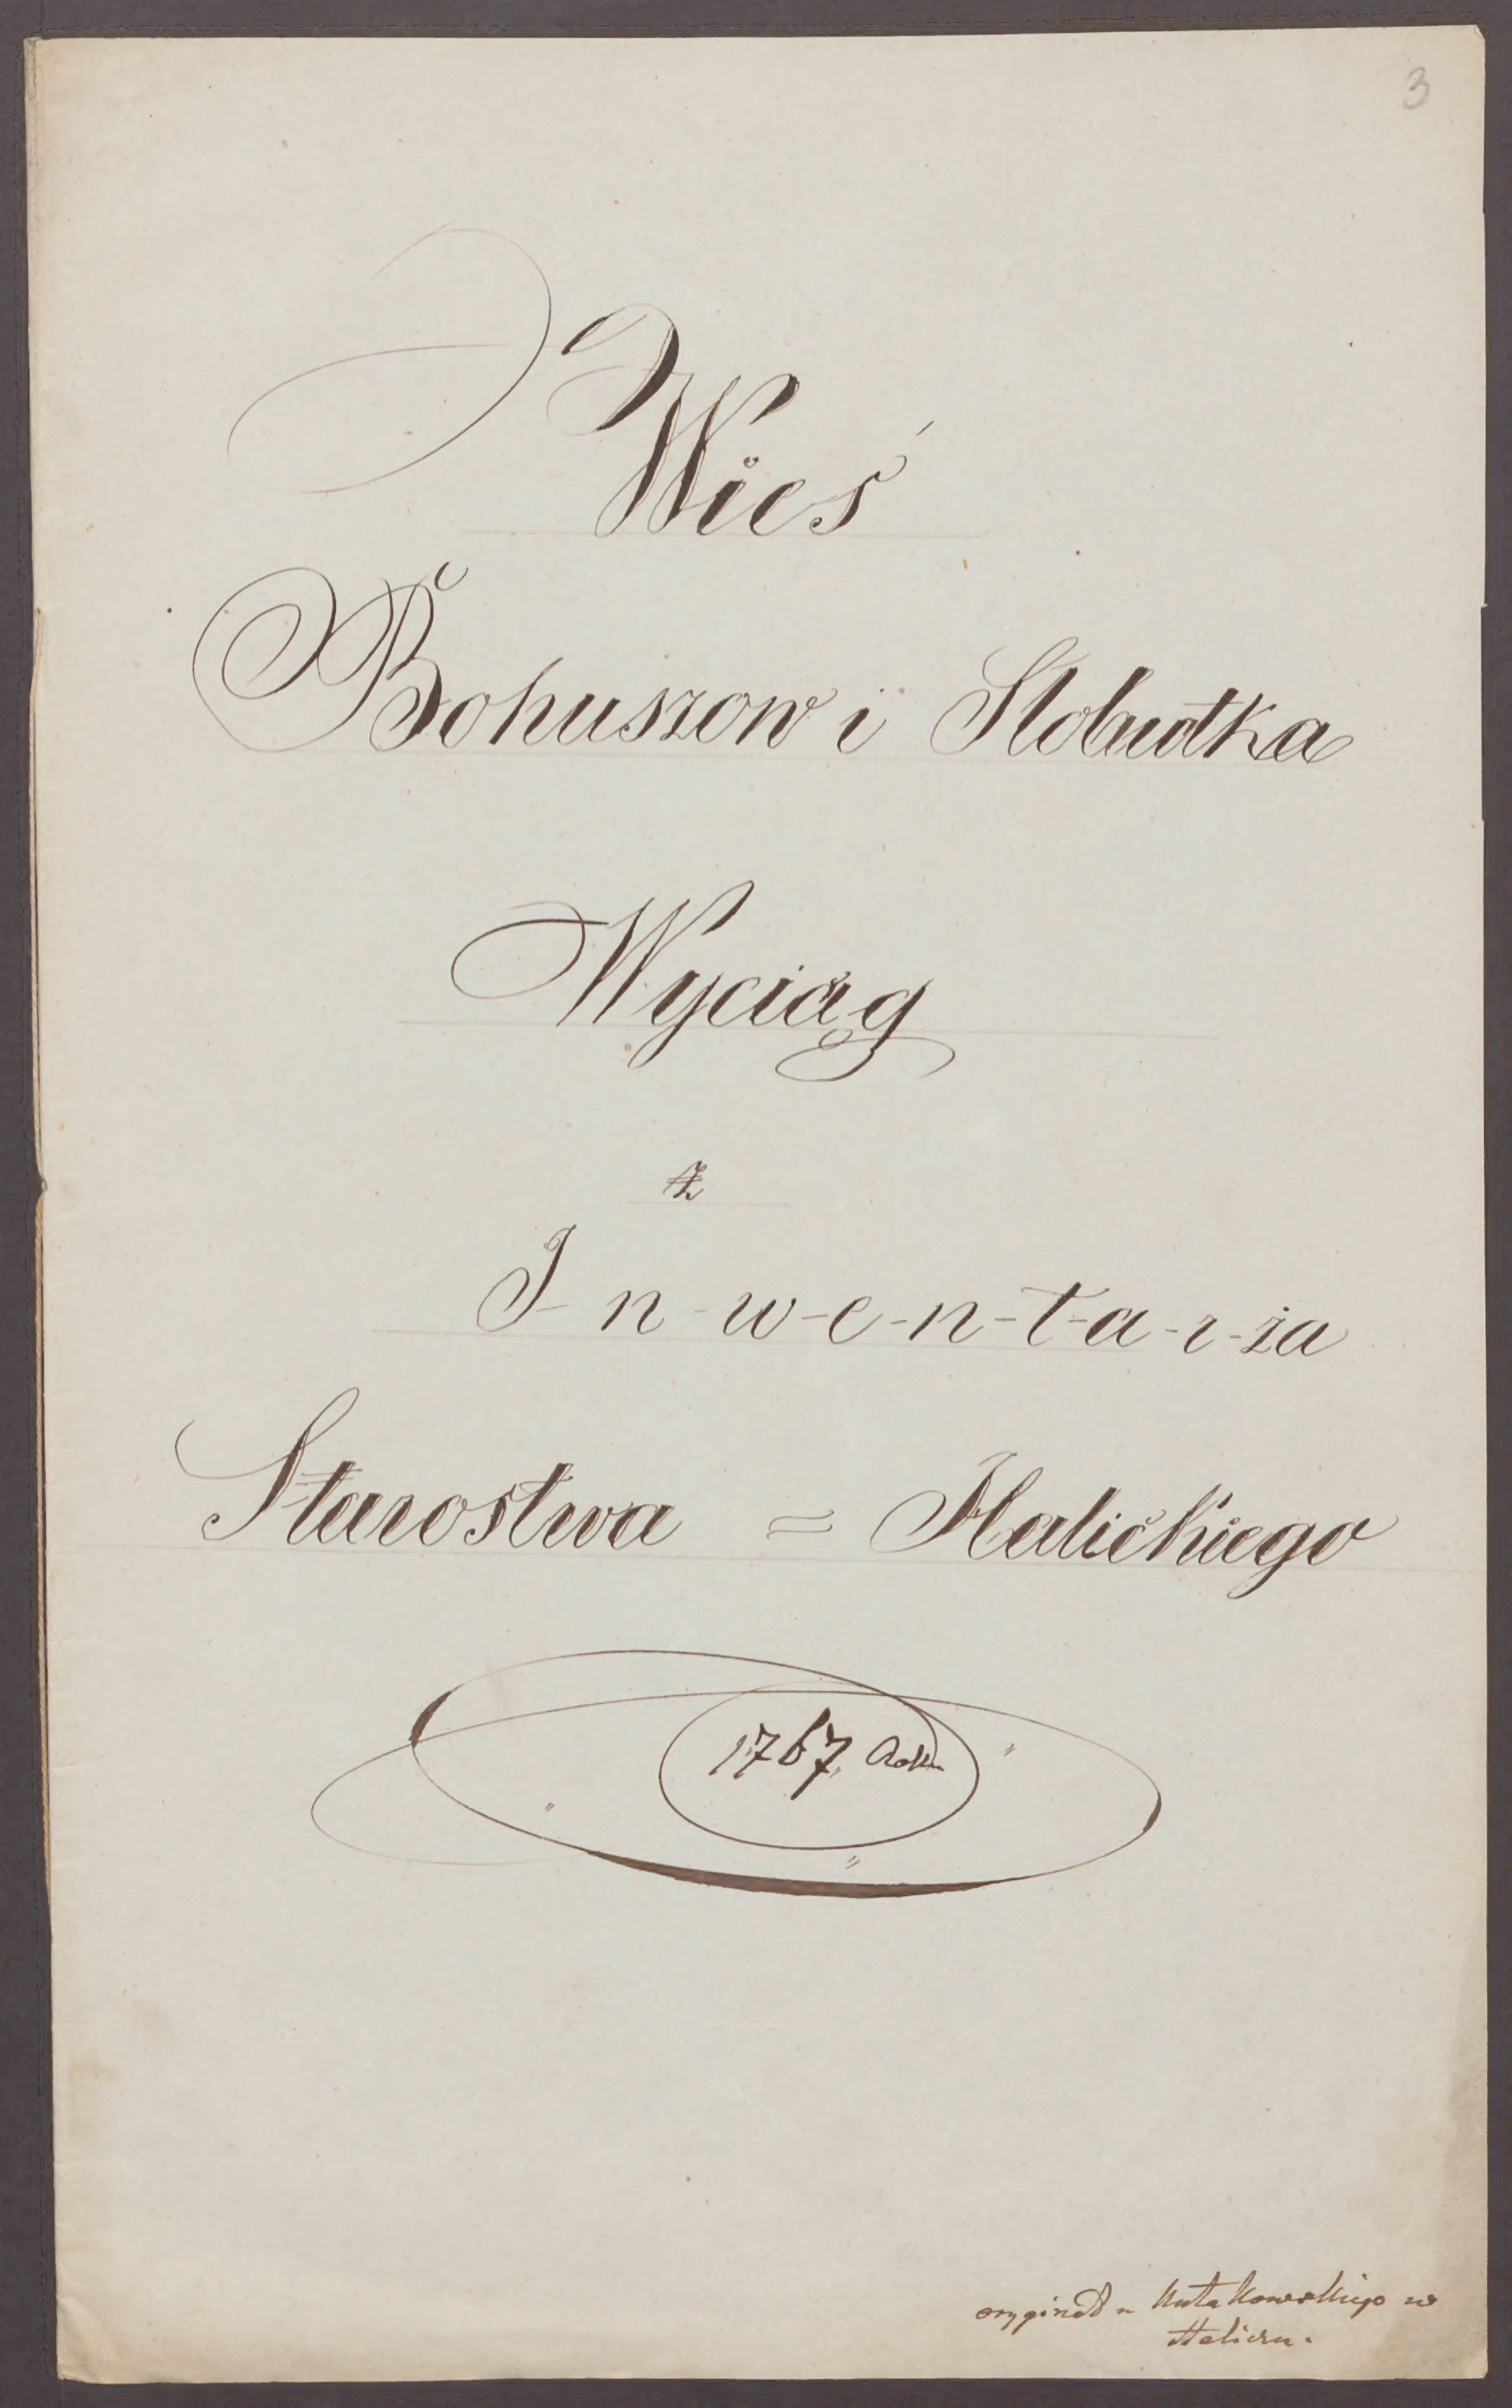 3
Wieś
Bohuszow i Slobudka
Wyciąg
z
I-n-w-e-n-t-a-r-ża
Starostwa = Halickiego
1767 Roku
oryginał u Kutakowskiego w
Haliczu.